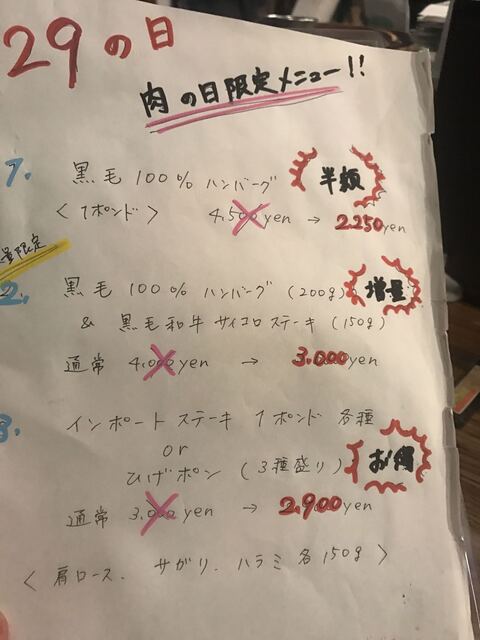 29の日
肉の日限定メニュー!!
1. 黒毛100%ハンバーグ 半額
<1ポンド> 4,500yen → 2250yen
量限定
2. 黒毛100%ハンバーグ(200g) 増量
& 黒毛和牛サイコロステーキ(150g)
通常 4,000yen → 3.000yen
3. インポートステーキ1ポンド各種
or
ひげポン(3種盛り) お得
通常 3,000yen → 2.900yen
<肩ロース、サガリ、ハラミ各150g>